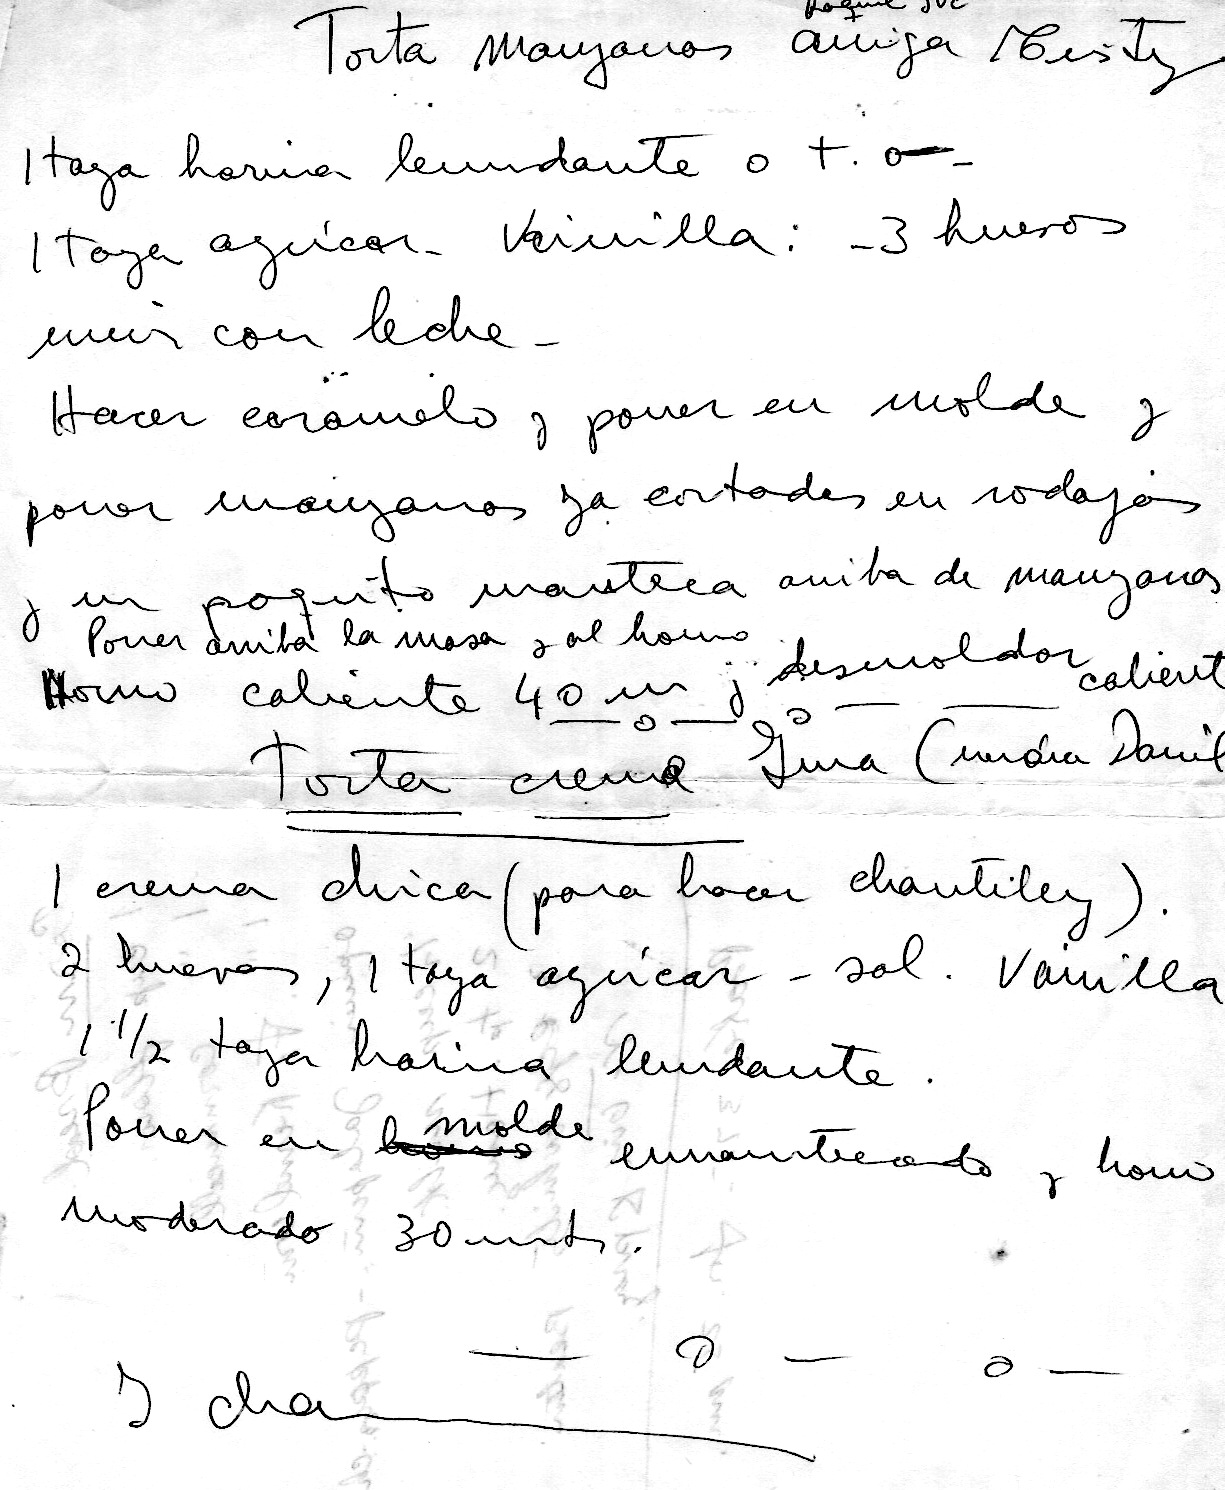 Torta manzanas amiga
1 taza harina leundante o t. o -
1 taza azúcar - Vainilla : - 3 huevos
unir con leche -
Hacer caramelo y poner en molde y
poner manzanas ya cortadas en rodajas
y un poquito manteca arriba de manzanas
Poner arriba la masa y al horno
Horno caliente 40 m y desmoldar calient
— o — o — —
Torta crema Gina ( Danil
1 crema chica (para hacer chantiley).
2 huevos, 1 taza azúcar - sal. Vainilla
1 1/2 taza harina leundante.
Poner en molde enmantecado y horno
moderado 30 mts.
— o — o —
Y cha